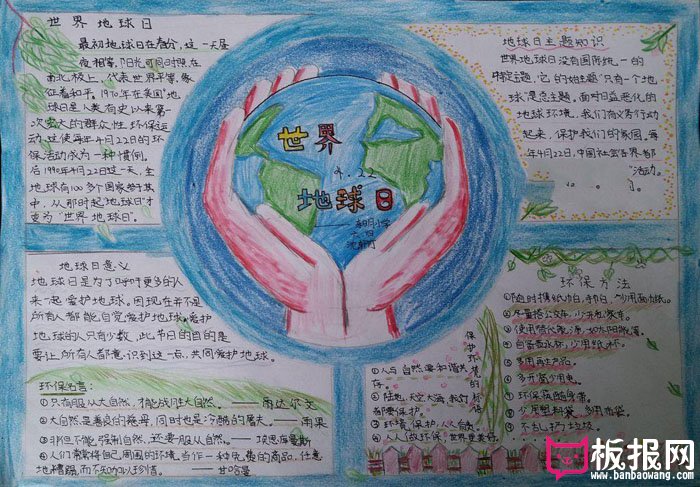 世界地球日
最初地球日在春分，这一天昼
夜相等，阳光可同时照在
南北极上，代表世界平等，象
征着和平。1970年在美国“地
球日是人类有史以来第一
次盛大的群众性环保运
动，这使每年4月22日的环
保活动成为一种惯例。
后1990年4月22日这一天，全
地球有100多个国家参与其
中，从那时起“地球日”才
变为“世界地球日”。
世界
4.22
地球日
地球日主题知识
世界地球日没有国际统一的
特定主题，它的始主题“只有一个地
球”是总主题。面对日益恶化的
地球环境，我们有义务行动
起来，保护我们的家园，每
年4月22日，中国社会各界都
活动。
地球日意义
地球日是为了呼吁更多的人
来一起爱护地球，因现在并不是
所有人都能自觉爱护地球，爱护
地球的人只有少数，此节日的目的是
要让所有人都意识到这一点，共同爱护地球。
环保名言：
①只有服从大自然，才能战胜大自然。——雨达尔文
②大自然是善良的慈母，同时也是冷酷的屠夫。——雨果
③非但不能强制自然，还要服从自然。
④人们常常将自己周围的环境当作一种免费的商品，任意
地糟蹋，而不知加以珍惜。——甘哈曼
保护环境的标
①人与自然要和谐共
存。
②陆地、天空、大海，我们
都要保护。
③环境保护，人人有责
④人人做环保，世界更美好。
环保方法
①随时携
②尽量搭公交车，少开私家车。
③使用替代能源，如太阳能等。
④自备
⑤多用再生产品。
⑥
⑦环保
⑧少用塑料袋，多用布袋。
⑨不
板报网
www.banbaowang.com